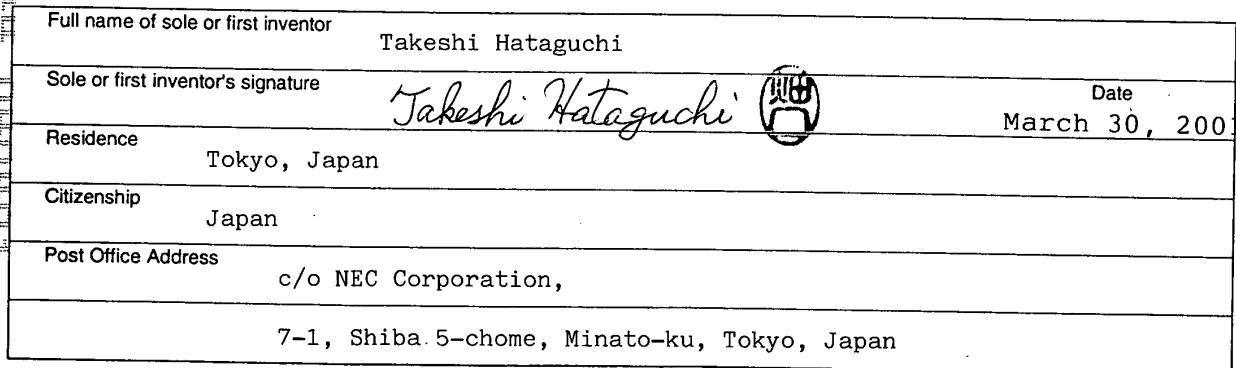 Full name of sole or first inventor
Takeshi Hataguchi
Sole or first inventor's signature
Takeshi Hataguchi 畑口
Date
March 30, 2001
Residence
Tokyo, Japan
Citizenship
Japan
Post Office Address
c/o NEC Corporation,
7-1, Shiba 5-chome, Minato-ku, Tokyo, Japan